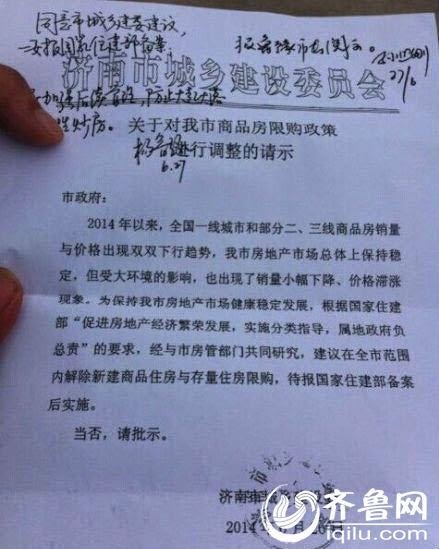 同意市城乡建委建议，
报鲁豫市长阅示。
27/6
济南市城乡建设委员会
关于对我市商品房限购政策
进行调整的请示
6.27
市政府：
2014年以来，全国一线城市和部分二、三线商品房销量
与价格出现双双下行趋势，我市房地产市场总体上保持稳
定，但受大环境的影响，也出现了销量小幅下降、价格滞涨
现象。为保持我市房地产市场健康稳定发展，根据国家住建
部“促进房地产经济繁荣发展，实施分类指导，属地政府负
总责”的要求，经与市房管部门共同研究，建议在全市范围
内解除新建商品住房与存量住房限购，待报国家住建部备案
后实施。
当否，请批示。
济南市城乡建设委
2014年6月26日
齐鲁网
iqilu.com